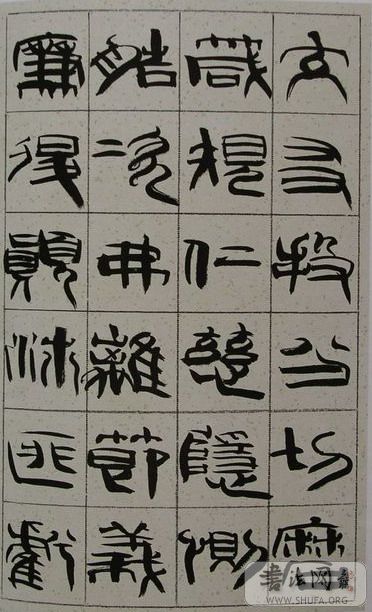 交友投分切磨
箴規仁慈隱惻
造次弗離節義
廉退顛沛匪虧
書法网
WWW.SHUFA.ORG